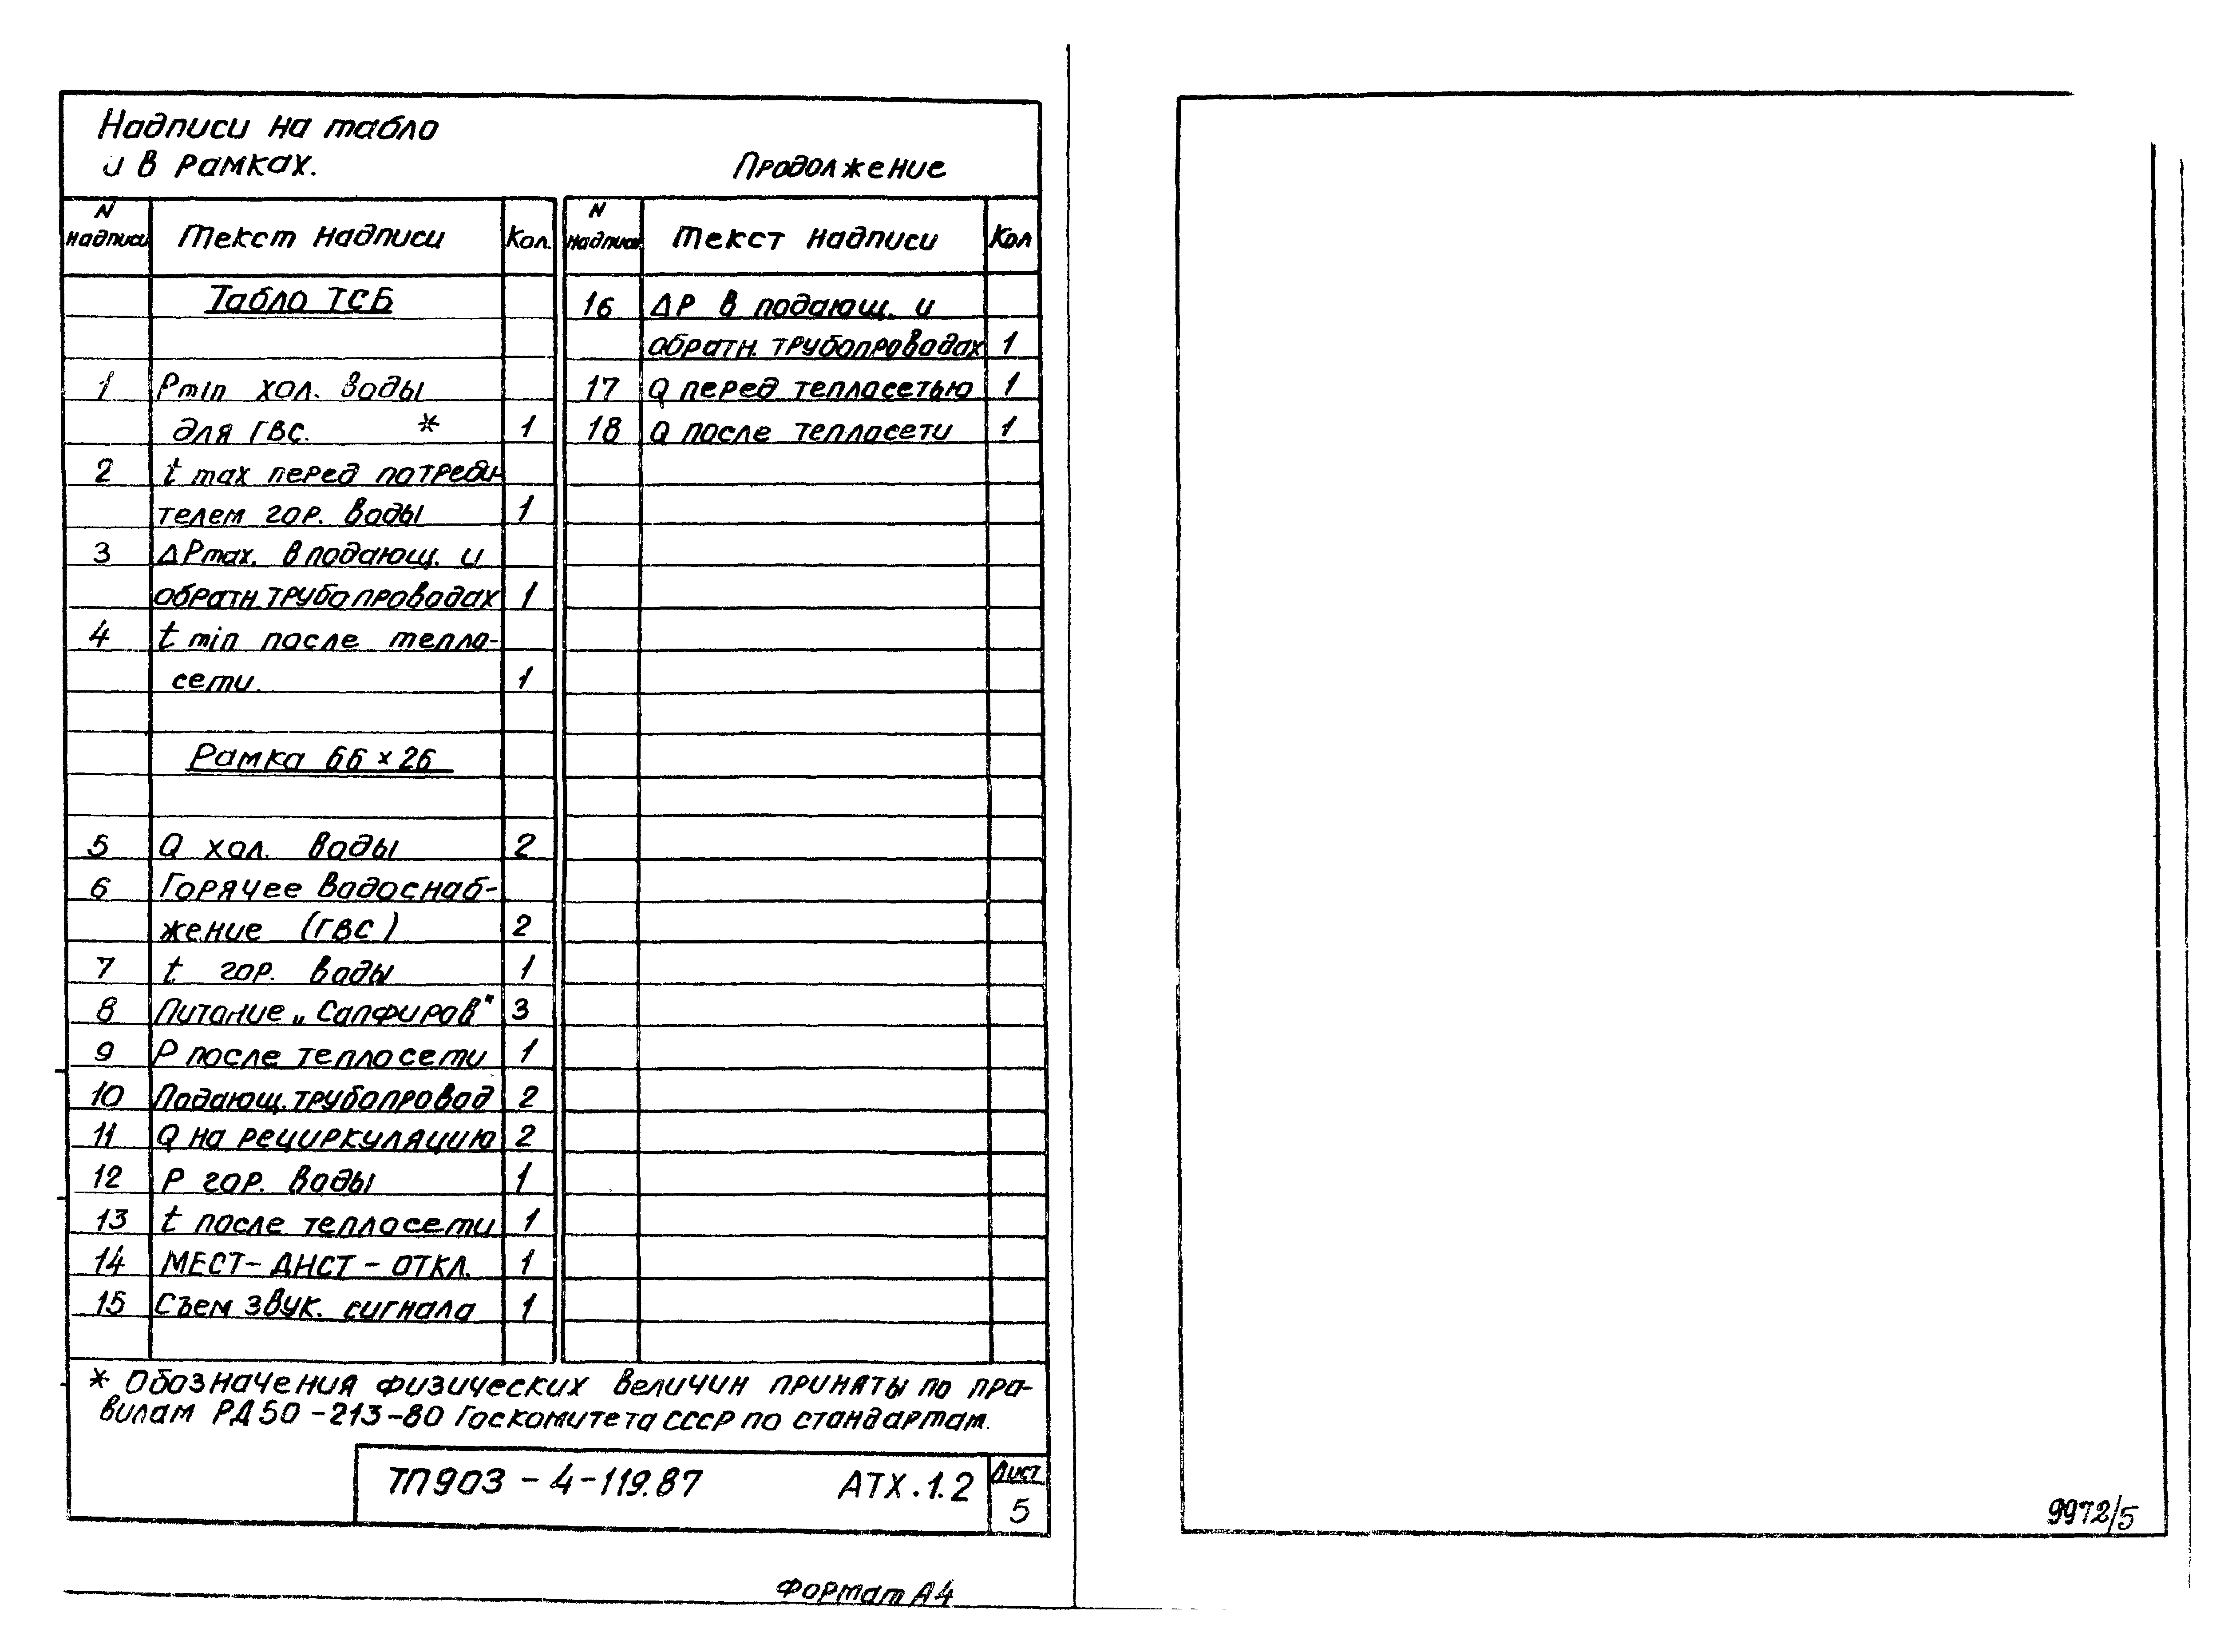 Надписи на табло
и в рамках.
Продолжение
N надписи Текст надписи Кол.
Табло ТСБ
1 Pmin хол. воды
для ГВС. * 1
2 t max перед потреби-
телем гор. воды 1
3 ΔPmax. в подающ. и
обратн. трубопроводах 1
4 t min после тепло-
сети. 1
Рамка 66 × 26
5 Q хол. воды 2
6 Горячее водоснаб-
жение (ГВС) 2
7 t гор. воды 1
8 Питание „Сапфиров" 3
9 P после теплосети 1
10 Подающ. трубопровод 2
11 Q на рециркуляцию 2
12 P гор. воды 1
13 t после теплосети 1
14 МЕСТ-ДИСТ-ОТКЛ. 1
15 Съем звук. сигнала 1
N надписи Текст надписи Кол
16 ΔP в подающ. и
обратн. трубопроводах 1
17 Q перед теплосетью 1
18 Q после теплосети 1
* Обозначения физических величин приняты по пра-
вилам РД50-213-80 Госкомитета СССР по стандартам.
ТП903-4-119.87 АТХ.1.2 Лист
5
Формат А4
9972/5